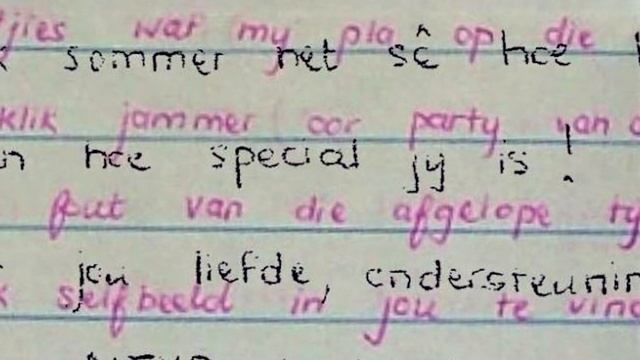 jies wat my pla op die
sommer net sê hoe
klik jammer oor party van
hoe special jy is!
fout van die afgelope
jou liefde, ondersteunin
selfbeeld in jou te vind